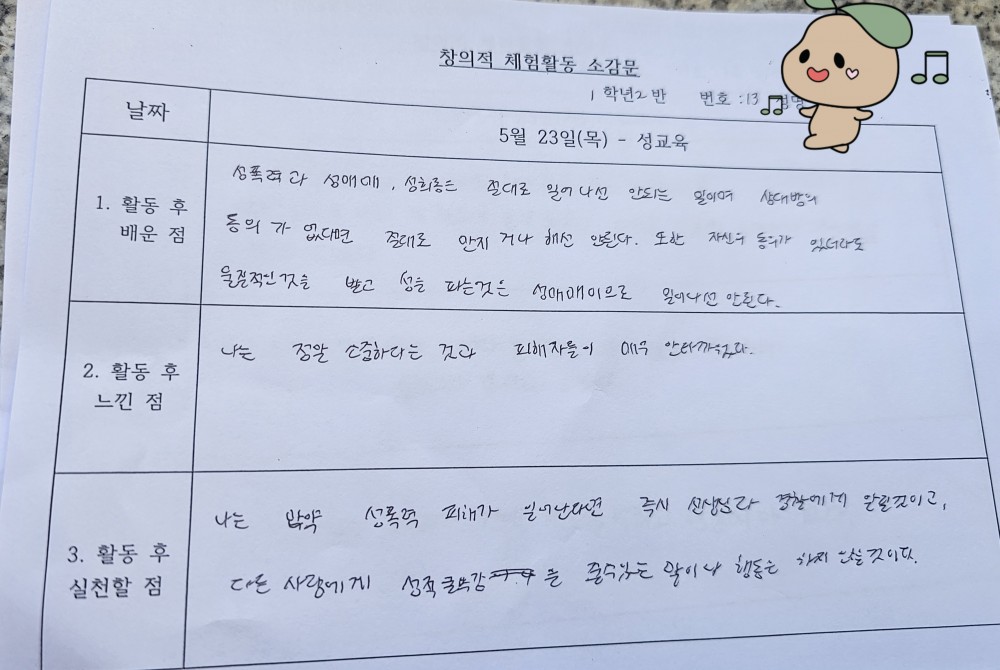 창의적 체험활동 소감문
1 학년 2 반 번호 : 13
날짜
5월 23일(목) - 성교육
1. 활동 후
배운 점
성폭력과 성매매, 성희롱은 절대로 일어나선 안되는 일이며 상대방의
동의가 없다면 절대로 만지거나 해선 안된다. 또한 자신의 동의가 있더라도
물질적인것을 받고 성을 파는것은 성매매이므로 일어나선 안된다.
2. 활동 후
느낀 점
나는 정말 소중하다는 것과 피해자들이 매우 안타까웠다.
3. 활동 후
실천할 점
나는 만약 성폭력 피해가 일어난다면 즉시 선생님과 경찰에게 알릴것이고,
다른 사람에게 성적 을 줄수있는 말이나 행동은 하지 않을것이다.